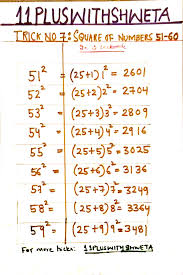 11PLUSWITHSHWETA
TRICK NO 7: SQUARE OF NUMBERS 51-60
51² = (25+1)1² = 2601
52² = (25+2)2² = 2704
53² = (25+3)3² = 2809
54² = (25+4)4² = 2916
55² = (25+5)5² = 3025
56² = (25+6)6² = 3136
57² = (25+7)7² = 3249
58² = (25+8)8² = 3364
59² = (25+9)9² = 3481
For more tricks: 11PLUSWITHSHWETA